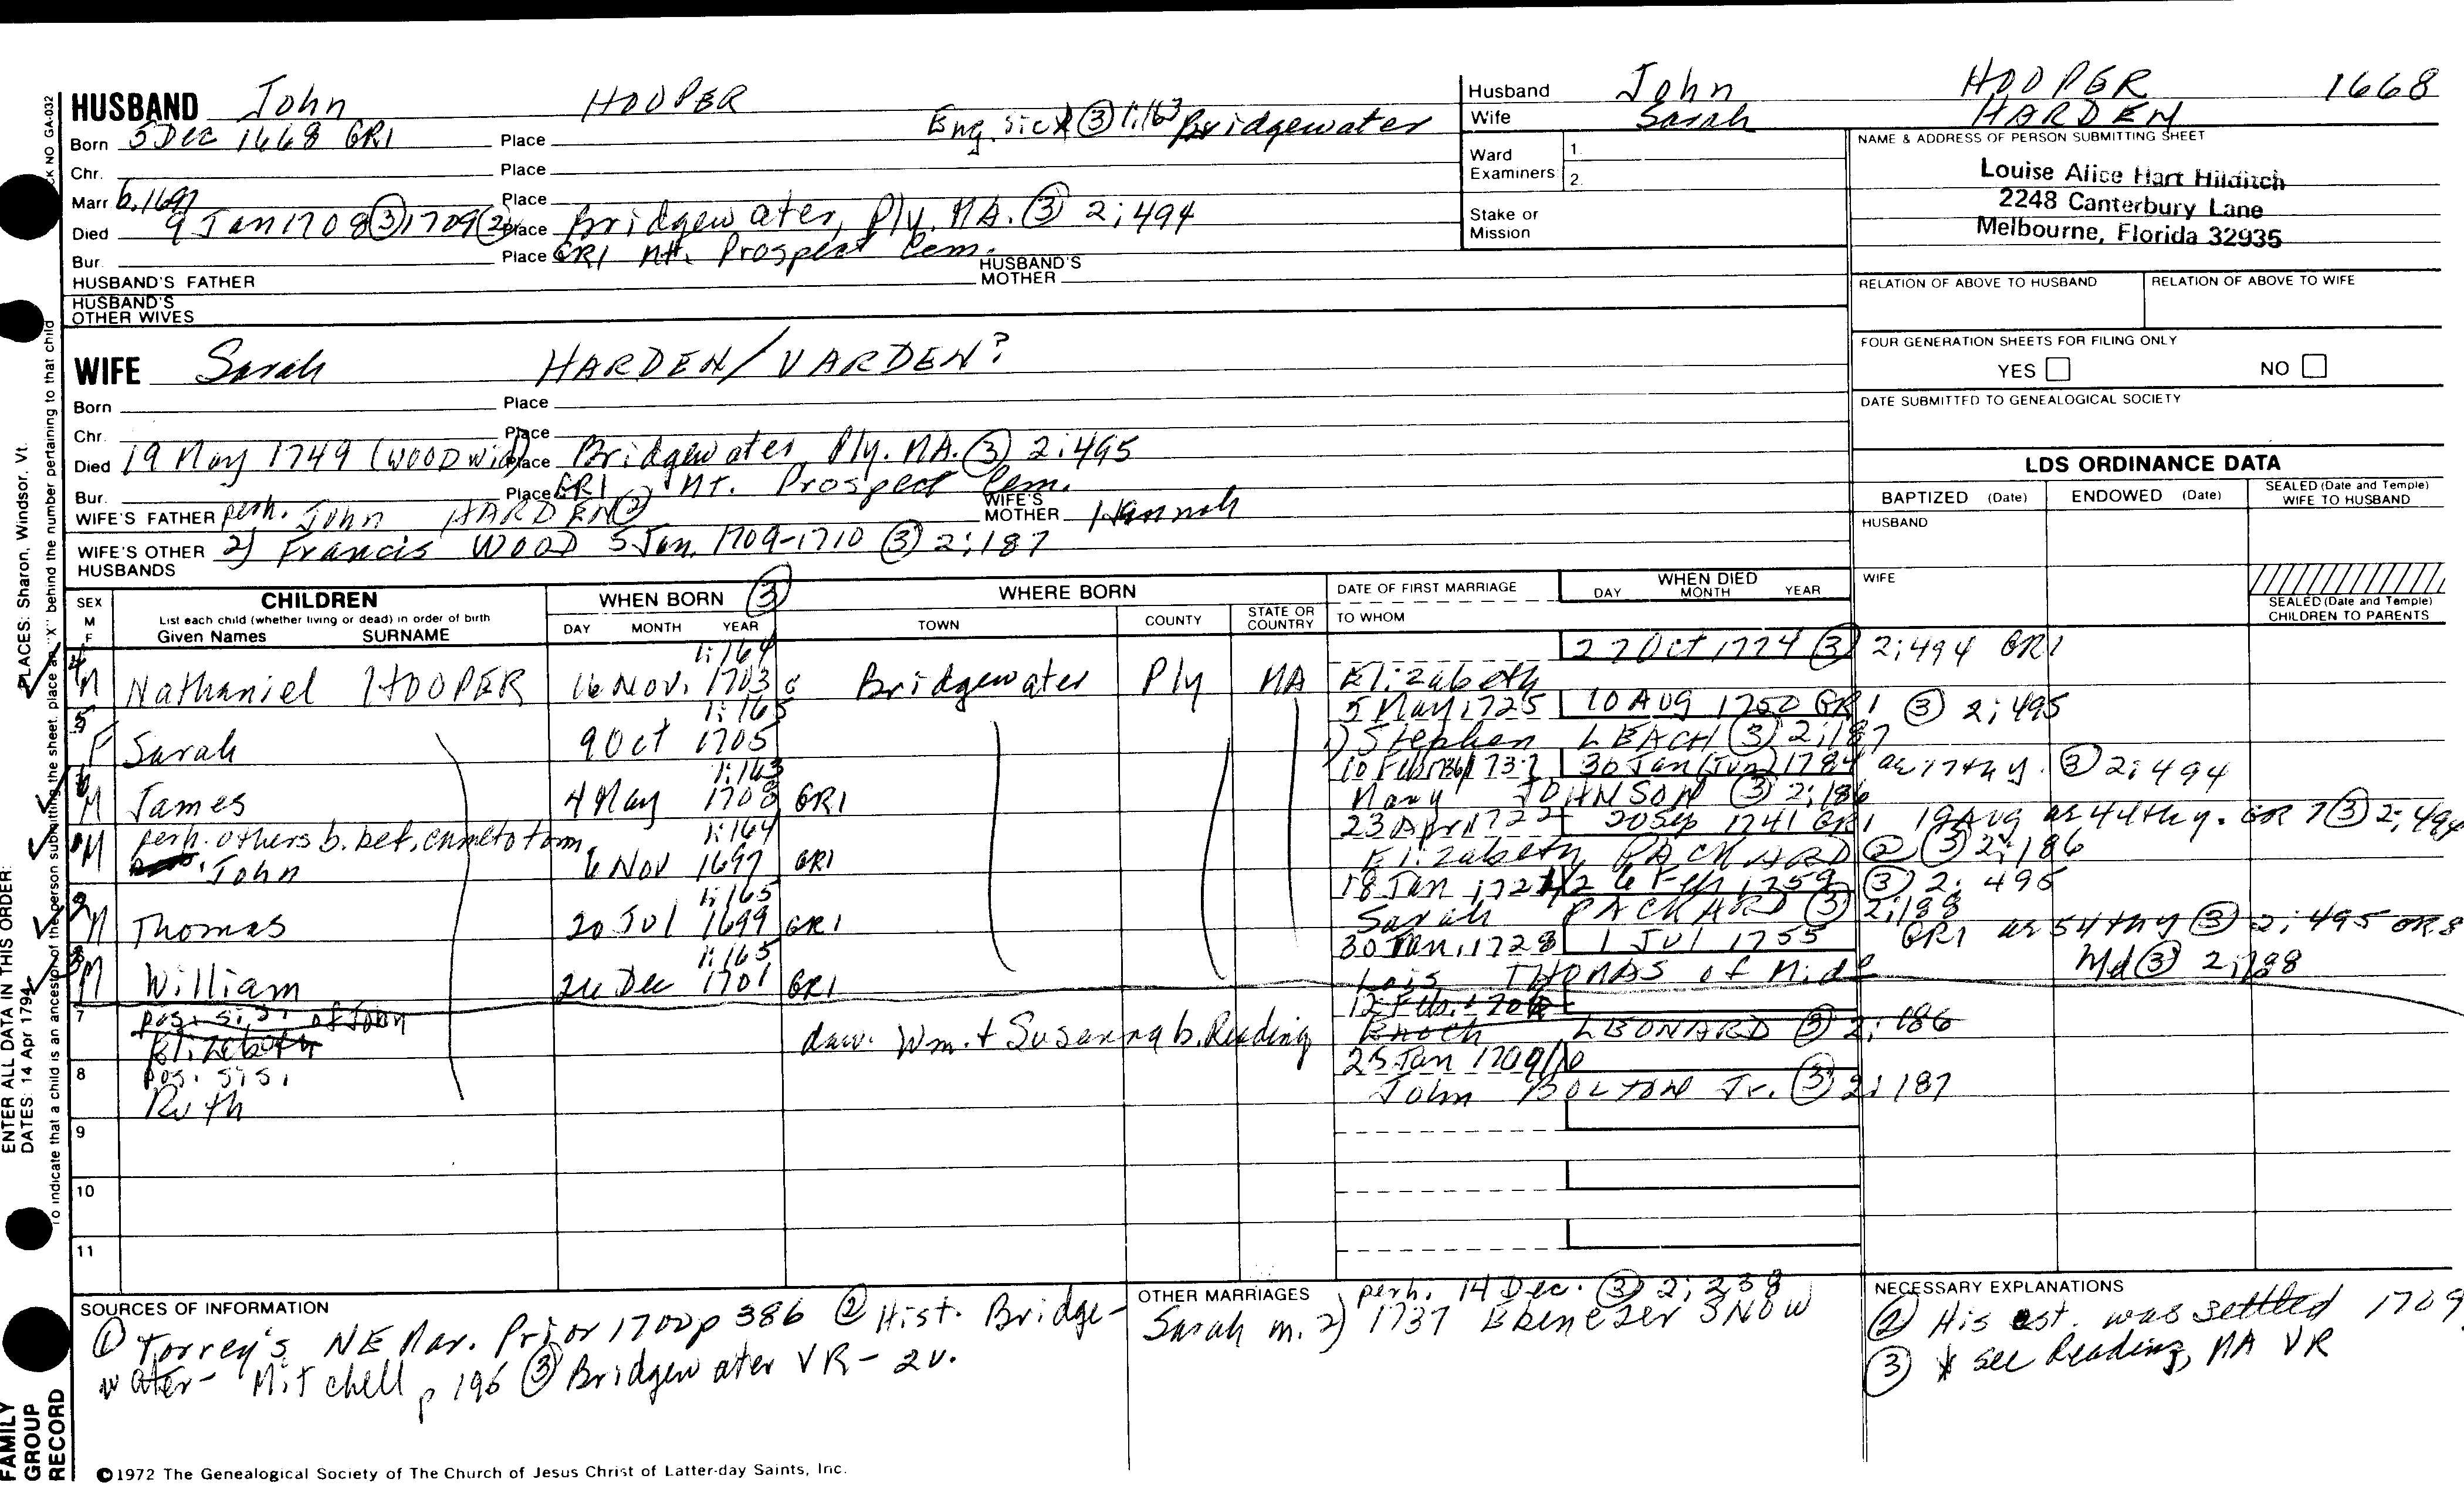 HUSBAND John HOOPER
Born 5 Dec 1668 GR1 Place Eng. sic * ③ 1:163 Bridgewater
Chr. Place
Marr b. 1697 Place
Died 9 Jan 1708 ③ 1709 ② Place Bridgewater, Ply. MA. ③ 2:494
Bur. Place GR1 Mt. Prospect Cem.
HUSBAND'S FATHER HUSBAND'S MOTHER
HUSBAND'S OTHER WIVES
Husband John HOOPER 1668
Wife Sarah HARDEN
Ward Examiners 1. 2.
Stake or Mission
NAME & ADDRESS OF PERSON SUBMITTING SHEET
Louise Alice Hart Hilditch
2248 Canterbury Lane
Melbourne, Florida 32935
RELATION OF ABOVE TO HUSBAND RELATION OF ABOVE TO WIFE
FOUR GENERATION SHEETS FOR FILING ONLY
YES NO
DATE SUBMITTED TO GENEALOGICAL SOCIETY
WIFE Sarah HARDEN/VARDEN?
Born Place
Chr. Place
Died 19 May 1749 (WOOD wid) Place Bridgewater Ply. MA. ③ 2:495
Bur. Place GR1 Mt. Prospect Cem.
WIFE'S FATHER perh. John HARDEN ② WIFE'S MOTHER Hannah
WIFE'S OTHER HUSBANDS 2) Francis WOOD 5 Jan. 1709-1710 ③ 2:187
LDS ORDINANCE DATA
BAPTIZED (Date) ENDOWED (Date) SEALED (Date and Temple) WIFE TO HUSBAND
HUSBAND
WIFE
SEALED (Date and Temple) CHILDREN TO PARENTS
SEX M F CHILDREN List each child (whether living or dead) in order of birth Given Names SURNAME
WHEN BORN ③ DAY MONTH YEAR
WHERE BORN TOWN COUNTY STATE OR COUNTRY
DATE OF FIRST MARRIAGE TO WHOM
WHEN DIED DAY MONTH YEAR
1:164 27 Oct 1774 ③ 2:494 GR1
4 M Nathaniel HOOPER 16 Nov. 1703 Bridgewater Ply MA Elizabeth
1:165 5 May 1725 10 AUG 1750 GR1 ③ 2:495
5 F Sarah 9 Oct 1705 1) Stephen LEACH ③ 2:187
1:163 10 Feb 1736/1737 30 Jan (Jun) 1784 ae 77th y. ③ 2:494
6 M James 4 May 1708 GR1 Mary JOHNSON ③ 2:186
perh. others b. bef. came to town. 1:164 23 Apr 1722 20 Sep 1741 GR1 19 Aug ae 44th y. GR 7 ③ 2:494
1 M John 6 Nov 1697 GR1 Elizabeth PACKARD ② ③ 2:186
1:165 18 Jan 1721/2 6 Feb 1759 ③ 2:495
2 M Thomas 20 Jul 1699 GR1 Sarah PACKARD ③ 2:188
1:165 30 Jan. 1728 1 Jul 1755 GR1 ae 54th y ③ 2:495 GR8
3 M William 24 Dec 1701 GR1 Lois THOMAS of Mid Md ③ 2:188
7 pos. sis. of John 12 Feb.
Elizabeth daw. Wm. + Susanna b. Reading Enoch LEONARD ③ 2:186
8 pos. sis. 25 Jan 1709/10
Ruth John BOLTON Jr. ③ 2:187
9
10
11
SOURCES OF INFORMATION
① Torrey's NE Mar. Prior 1700 p 386 ② Hist. Bridge-
water - Mitchell p 196 ③ Bridgewater VR - 2v.
OTHER MARRIAGES perh. 14 Dec. ③ 2:238
Sarah m. 2) 1737 Ebenezer SNOW
NECESSARY EXPLANATIONS
② His est. was settled 1709
③ * see Reading, MA VR
©1972 The Genealogical Society of The Church of Jesus Christ of Latter-day Saints, Inc.
FAMILY GROUP RECORD
ENTER ALL DATA IN THIS ORDER:
DATES: 14 Apr 1794
PLACES: Sharon, Windsor, Vt.
To indicate that a child is an ancestor of the person submitting the sheet, place an "X" behind the number pertaining to that child
CK NO GA-032